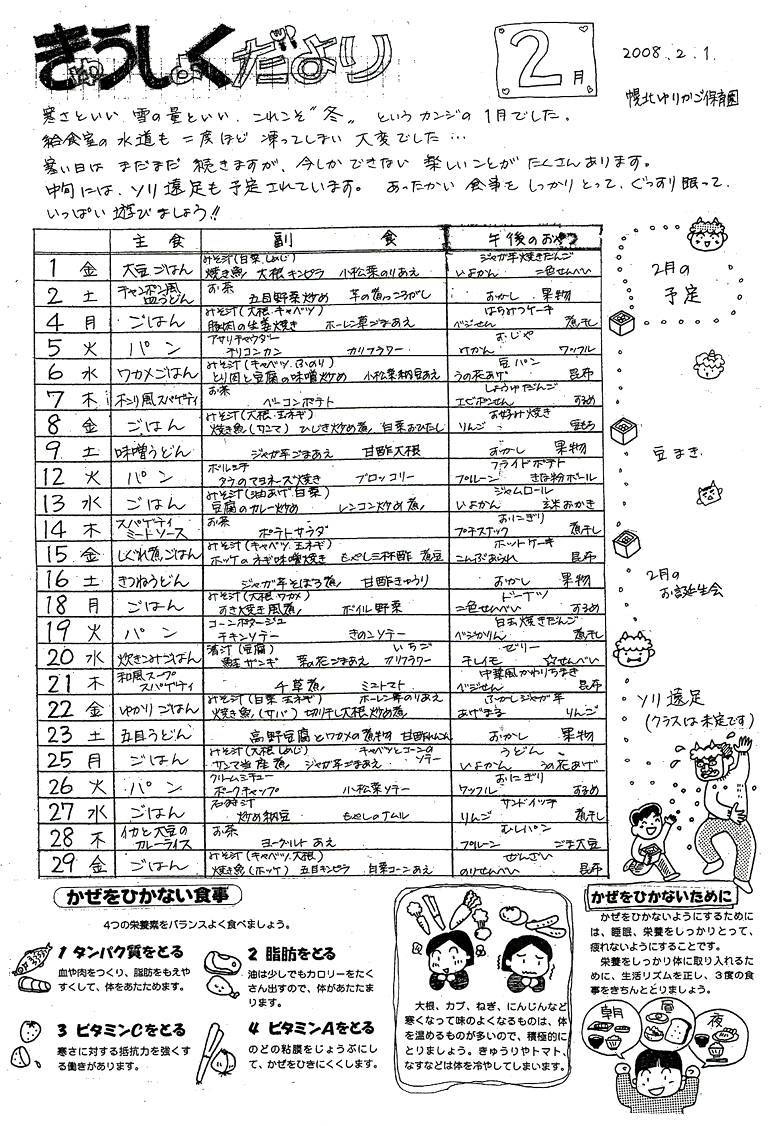 きゅうしょくだより
2月
2008.2.1.
幌北ゆりかご保育園
寒さといい 雪の量といい、これこそ"冬"というカンジの1月でした。
給食室の水道も二度ほど凍ってしまい大変でした…
寒い日はまだまだ続きますが、今しかできない楽しいことがたくさんあります。
中旬には、ソリ遠足も予定されています。あったかい食事をしっかりとって、ぐっすり眠って、
いっぱい遊びましょう!!
主食 副食 午後のおやつ
みそ汁(白菜、しめじ) ジャガ芋焼きだんご
1 金 大豆ごはん 焼き魚 大根キンピラ 小松菜のりあえ いよかん 二色せんべい
2 土 チャンポン風皿うどん お茶 五目野菜炒め 芋の煮っころがし おかし 果物
みそ汁(大根、キャベツ) はちみつケーキ
4 月 ごはん 豚肉の生姜焼き ホーレン草ごまあえ ベジせん 煮干し
アサリチャウダー おじや
5 火 パン チリコンカン カリフラワー みかん ワッフル
みそ汁(キャベツ、ふのり) 豆パン
6 水 ワカメごはん とり肉と豆腐の味噌炒め 小松菜納豆あえ うの花あげ 昆布
お茶 しょうゆだんご
7 木 ベーコンポテト エビポンせん するめ
みそ汁(大根、玉ネギ) お好み焼き
8 金 ごはん 焼き魚(サンマ) ひじき炒め煮 白菜おひたし りんご
9 土 味噌うどん ジャガ芋ごまあえ 甘酢大根 おかし 果物
ボルシチ フライドポテト
12 火 パン タラのマヨネーズ焼き ブロッコリー プルーン きな粉ボール
みそ汁(油あげ、白菜) ジャムロール
13 水 ごはん 豆腐のカレー炒め レンコン炒め煮 いよかん 玄米おかき
お茶 おにぎり
14 木 スパゲティミートソース ポテトサラダ プチスナック 煮干し
みそ汁(キャベツ、玉ネギ) ホットケーキ
15 金 しぐれ煮ごはん ホッケのネギ味噌焼き もやし三杯酢 煮豆 こんぶあられ 昆布
16 土 きつねうどん ジャガ芋そぼろ煮 甘酢きゅうり おかし 果物
みそ汁(大根、ワカメ) ドーナツ
18 月 ごはん すき焼き風煮 ボイル野菜 二色せんべい するめ
コーンポタージュ 白玉焼きだんご
19 火 パン チキンソテー きのこソテー ベジかりん 煮干し
清汁(豆腐) いちご ゼリー
20 水 炊きこみごはん 鮭ザンギ 菜の花ごまあえ カリフラワー 干しイモ ☆せんべい
中華風かわりちまき
21 木 和風スープスパゲティ 千草煮 ミニトマト ベジせん 昆布
みそ汁(白菜、玉ネギ) ホーレン草のりあえ ふかしジャガ芋
22 金 ゆかりごはん 焼き魚(サバ) 切り干し大根炒め煮 りんご
23 土 五目うどん 高野豆腐とワカメの煮物 おかし 果物
みそ汁(大根、しめじ) キャベツとコーンのソテー うどん
25 月 ごはん ジャガ芋ごまあえ いよかん うの花あげ
クリームシチュー おにぎり
26 火 パン ポークチャップ 小松菜ソテー ワッフル するめ
石狩汁 サンドイッチ
27 水 ごはん 炒め納豆 もやしのナムル りんご 煮干し
お茶 むしパン
28 木 イカと大豆のカレーライス ヨーグルトあえ プルーン ごま大豆
みそ汁(キャベツ、大根) ぜんざい
29 金 ごはん 焼き魚(ホッケ) 五目キンピラ 白菜コーンあえ のりせんべい 昆布
2月の
予定
豆まき
2月の
お誕生会
ソリ遠足
(クラスは未定です)
かぜをひかない食事
4つの栄養素をバランスよく食べましょう。
1 タンパク質をとる
血や肉をつくり、脂肪をもえや
すくして、体をあたためます。
2 脂肪をとる
油は少しでもカロリーをたく
さん出すので、体があたたま
ります。
3 ビタミンCをとる
寒さに対する抵抗力を強くす
る働きがあります。
4 ビタミンAをとる
のどの粘膜をじょうぶにし
て、かぜをひきにくくします。
大根、カブ、ねぎ、にんじんなど
寒くなって味のよくなるものは、体
を温めるものが多いので、積極的に
とりましょう。きゅうりやトマト、
なすなどは体を冷やしてしまいます。
かぜをひかないために
かぜをひかないようにするために
は、睡眠、栄養をしっかりとって、
疲れないようにすることです。
栄養をしっかり体に取り入れるた
めに、生活リズムを正し、3度の食
事をきちんととりましょう。
朝
昼
夜